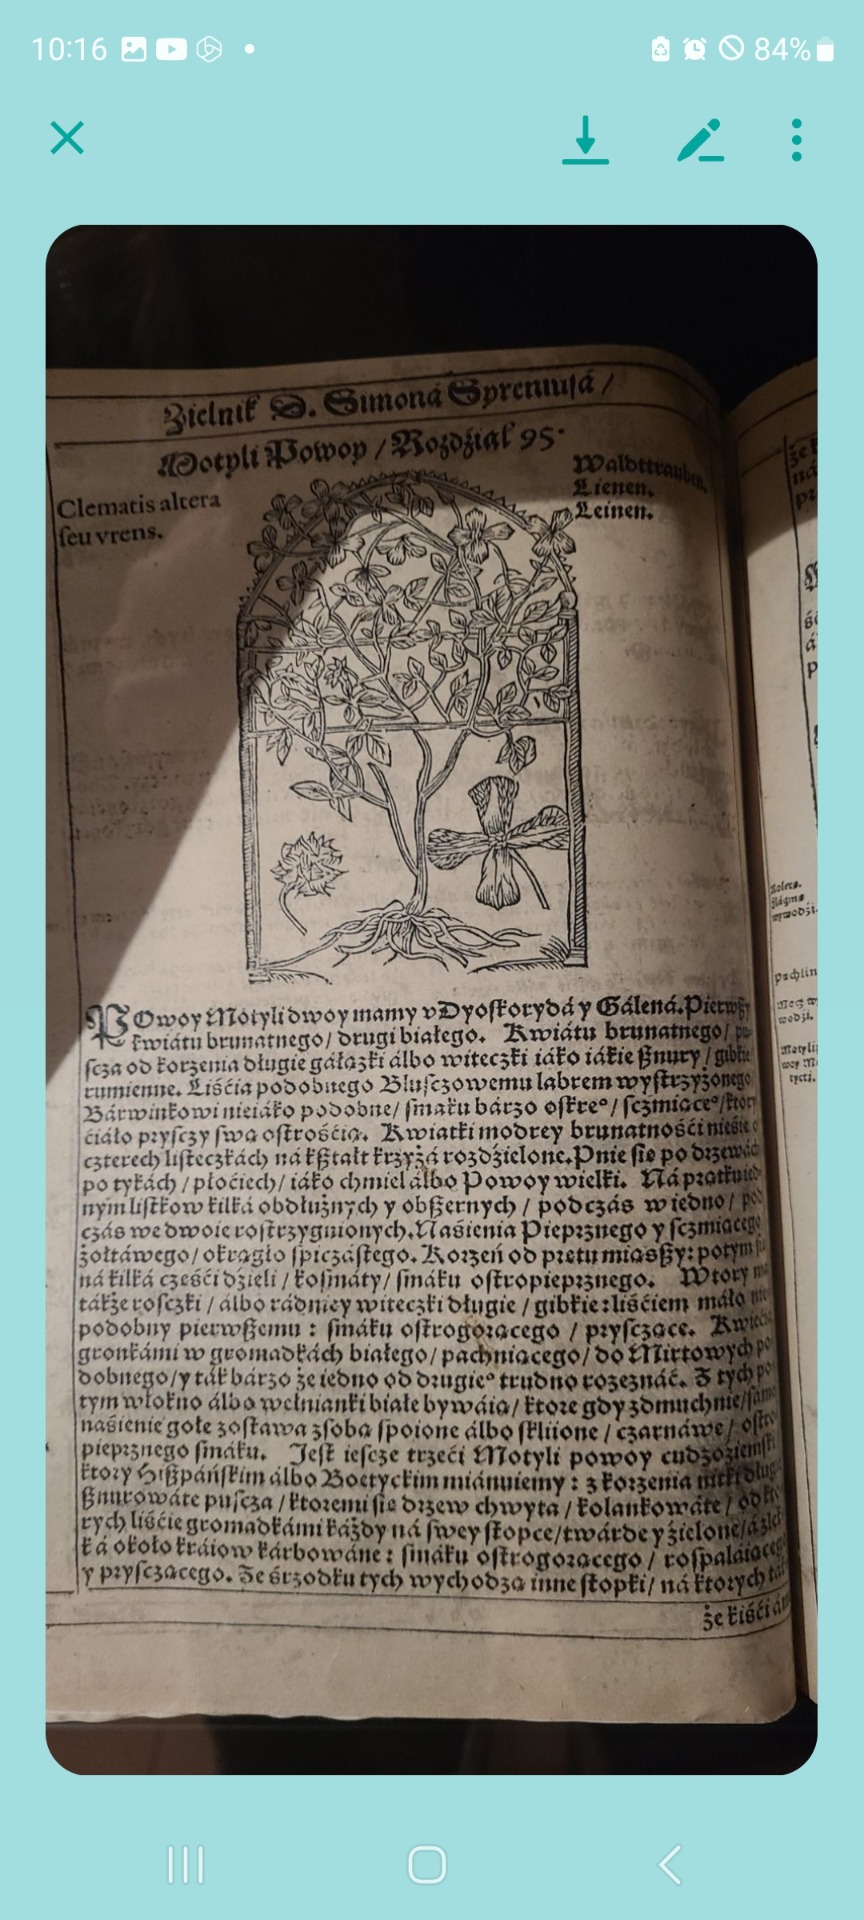 10:16
84%
Zielnik D. Simoná Spreniusá /
Motyli Powoy / Rozdźiał 95.
Clematis altera
seu vrens.
Waldttrauben.
Lienen.
Leinen.
POwoy Motyli dwoy mamy v Dyoskorydá y Gálená. Pierwßy
kwiátu brunatnego / drugi białego. Kwiátu brunatnego /
ſcza od korzenia długie gáłązki álbo witeczki iáko iákie ßnury / gibkie
rumienne. Liśćia podobnego Bluſczowemu labrem wyſtrzyżonego
Bárwinkowi nieiáko podobne / ſmáku bárzo oſtre° / ſczmiące° / ktory
ćiáło pryſczy ſwą oſtrośćią. Kwiatki modrey brunatnośći nieśie
czterech liſteczkách ná kßtałt krzyżá rozdźielone. Pnie ſie po drzewách
po tykách / płoćiech / iáko chmiel álbo Powoy wielki. Ná
nym liſtkow kilká obdłużnych y obßernych / podczás w iedno / pod
czás we dwoie roſtrzygnionych. Naśienia Pieprznego y ſczmiącego
żołtáwego / okrągło ſpiczáſtego. Korzeń od prętu miąsßy: potym
ná kilká częśći dźieli / koſmáty / ſmáku oſtropieprznego. Wtory
tákże roſczki / álbo rádniey witeczki długie / gibkie: liśćiem máło
podobny pierwßemu : ſmáku oſtrogorącego / pryſczące. Kwiećia
gronkámi w gromadkách białego / pachniącego / do Mirtowych po
dobnego / y ták bárzo że iedno od drugie° trudno rozeznáć. Z tych po
tym włokno álbo wełnianki białe bywáią / ktore gdy zdmuchnie / ſamo
naśienie gołe zoſtawa zſobą ſpoione álbo ſkliione / czarnáwe / oſtro
pieprznego ſmáku. Jeſt ieſcze trzeći Motyli powoy cudzoźiemſki
ktory Hißpáńſkim álbo Boetyckim miánuiemy : z korzenia nitki długie
ßnurowáte puſcza / ktoremi ſie drzew chwyta / kolankowáte / od kto
rych liśćie gromadkámi káżdy ná ſwey ſtopce / twárde y źielone /
ká około kráiow kárbowáne : ſmáku oſtrogorącego / roſpaláiącego
y pryſczącego. Ze śrzodku tych wychodzą inne ſtopki / ná ktorych tá
że kiśći
wywodźi.